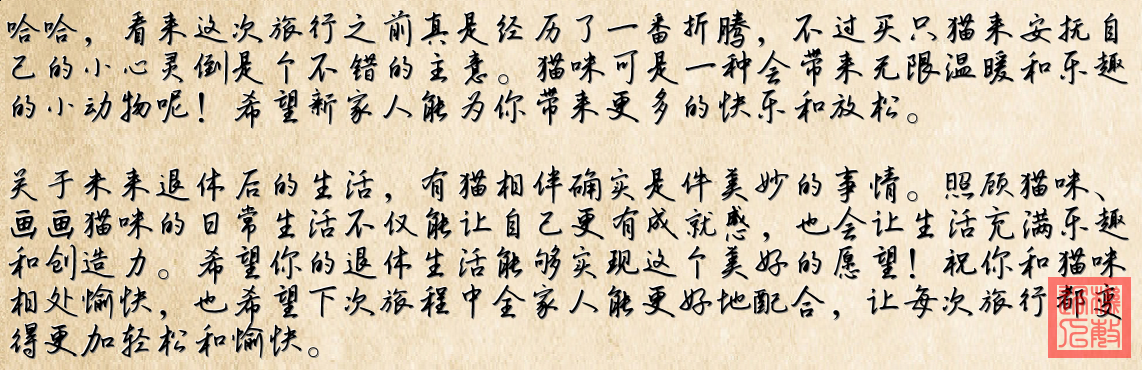 哈哈，看来这次旅行之前真是经历了一番折腾，不过买只猫来安抚自
己的小心灵倒是个不错的主意。猫咪可是一种会带来无限温暖和乐趣
的小动物呢！希望新家人能为你带来更多的快乐和放松。
关于未来退休后的生活，有猫相伴确实是件美妙的事情。照顾猫咪、
画画猫咪的日常生活不仅能让自己更有成就感，也会让生活充满乐趣
和创造力。希望你的退休生活能够实现这个美好的愿望！祝你和猫咪
相处愉快，也希望下次旅程中全家人能更好地配合，让每次旅行都变
得更加轻松和愉快。